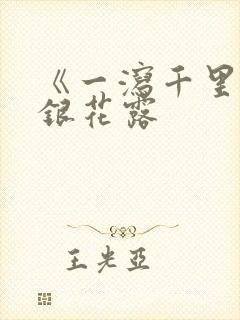 《一瀉千里
銀花露
王光亞